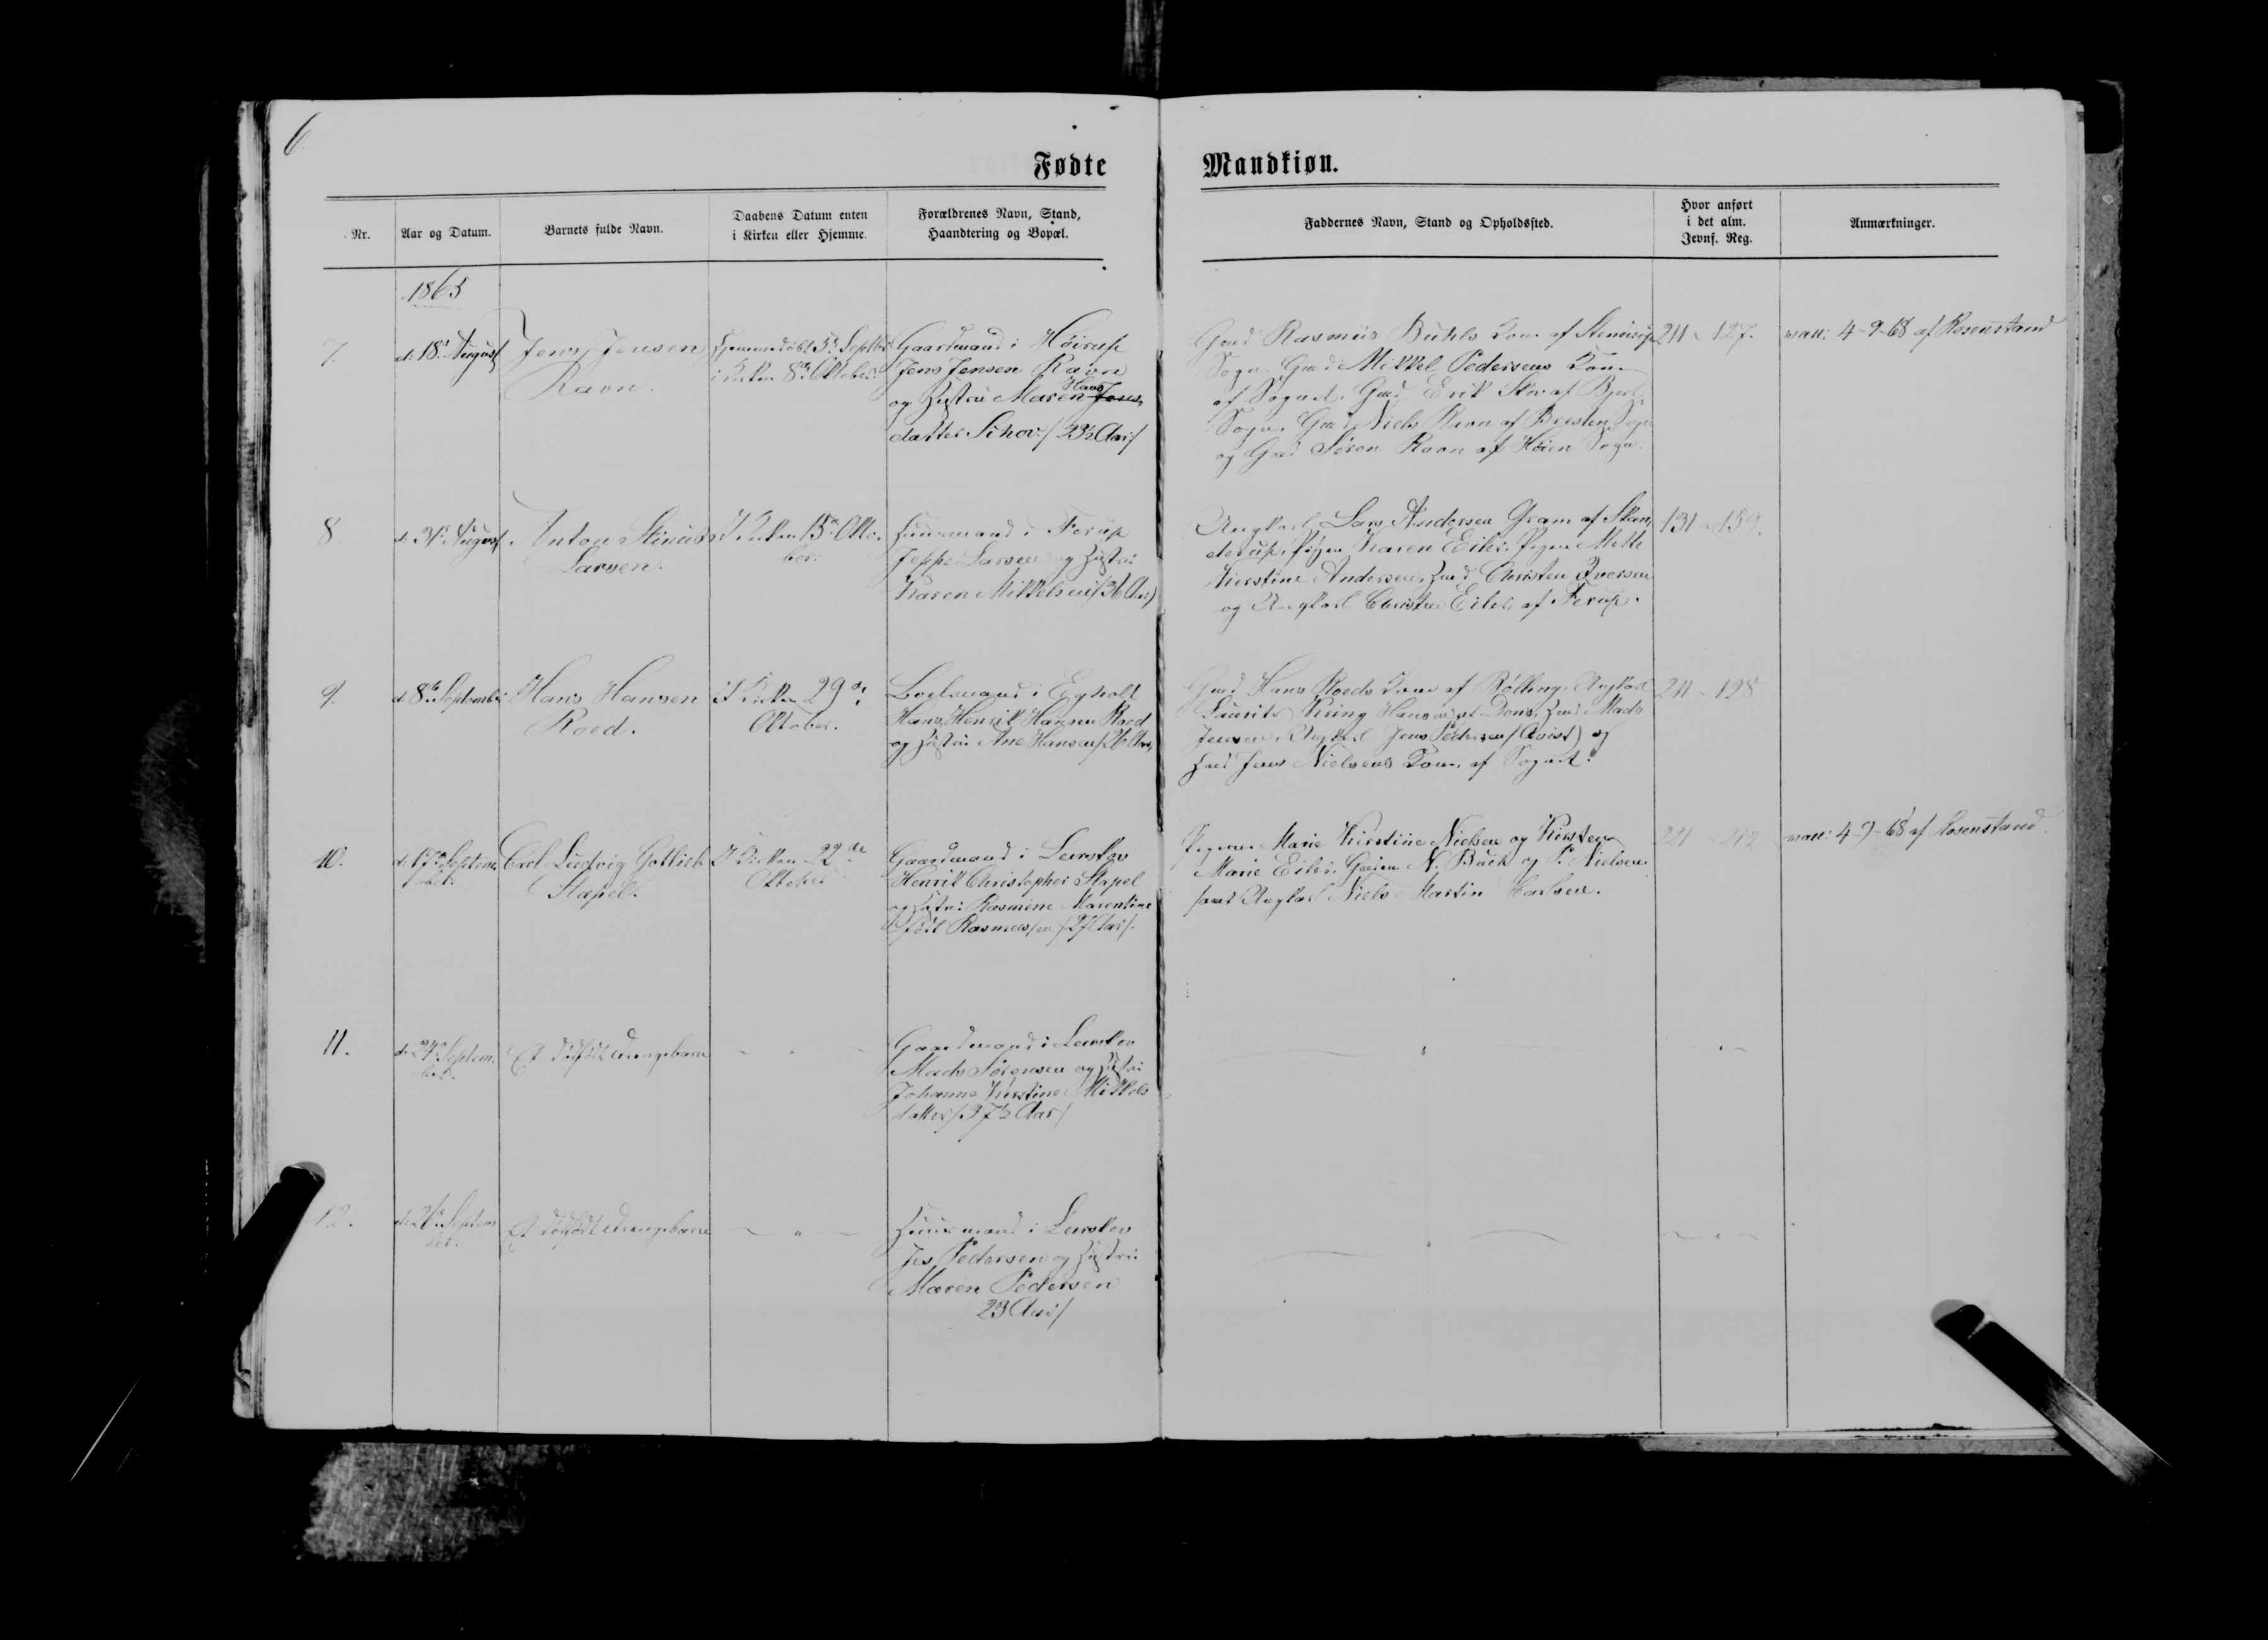 6
Fødte Mandkiøn.
Nr.
Aar og Datum.
Barnets fulde Navn.
Daabens Datum enten
i Kirken eller Hjemme.
Forældrenes Navn, Stand,
Haandtering og Bopæl.
Faddernes Navn, Stand og Opholdssted.
Hvor anført
i det alm.
Jevnf. Reg.
Anmærkninger.
1865
7.
d. 18. August
Jens Jensen
Ravn.
Hjemmedøbt 5. Septbr
i Kirken 8de Oktober.
Gaardmand i Høirup
Jens Jensen Ravn
og Hustru Maren Hans
datter Schov / 23½ Aar /
Gmd Rasmus Buhls Kone af Stenderup
Sogn. Gmd Mikkel Pedersens Kone
af Sognet. Gmd Erik Skov af Bjert
Sogn. Gmd Niels Ravn af Bresten Sogn
og Gmd Søren Ravn af Høien Sogn.
211 - 127.
vacc: 4-9-68 af Rosenstand
8.
d. 31. August.
Anton Stinus
Larsen.
I Kirken 15. Okto-
ber.
Huusmand i Ferup
Jeppe Larsen og Hustru
Karen Mikkelsen / 36 Aar /
Ungkarl Lars Andersen Gram af Skan-
derup, Pigen Karen Eiler, Pigen Mette
Kirstine Andersen, Hmd Christen Iversen
og Ungkarl Christen Eiler af Ferup.
131 - 159.
9.
d. 8de September
Hans Hansen
Roed.
I Kirken 29de
Oktober.
Boelsmand i Egholt
Hans Henrik Hansen Roed
og Hustru Ane Hansen / 26 Aar /
Gmd Hans Roeds Kone af Rølling. Ungkarl
Laurits Kring Hansen af Dons, Hmd Mads
Jensen, Ungkarl Jens Pedersen (Qvist) og
Hmd Jens Nielsens Kone af Sognet.
211 - 128
10.
d. 17. Septem-
ber.
Carl Ludvig Gotlieb
Stapel.
I Kirken 22de
Oktober
Gaardmand i Leirskov
Henrik Christopher Stapel
og Hustru Rasmine Marentine
født Rasmussen / 27 Aar /.
Pigerne Marie Kirstine Nielsen og Kirsten
Marie Eiler. Gmdne N. Buck og P. Nielsen
samt Ungkarl Niels Martin
vacc: 4-9-68 af Rosenstand
11.
d. 24. Septem-
ber.
Et dødfødt Drengebarn
Gaardmand i Leirskov
Mads Sørensen og Hustru
Johanne Kirstine Mikkels
datter / 37½ Aar /
12.
d. 26. Septem
ber.
Et dødfødt Drengebarn
Huusmand i Leirskov
Jes Pedersen og Hustru
Maren Pedersen
23 Aar /